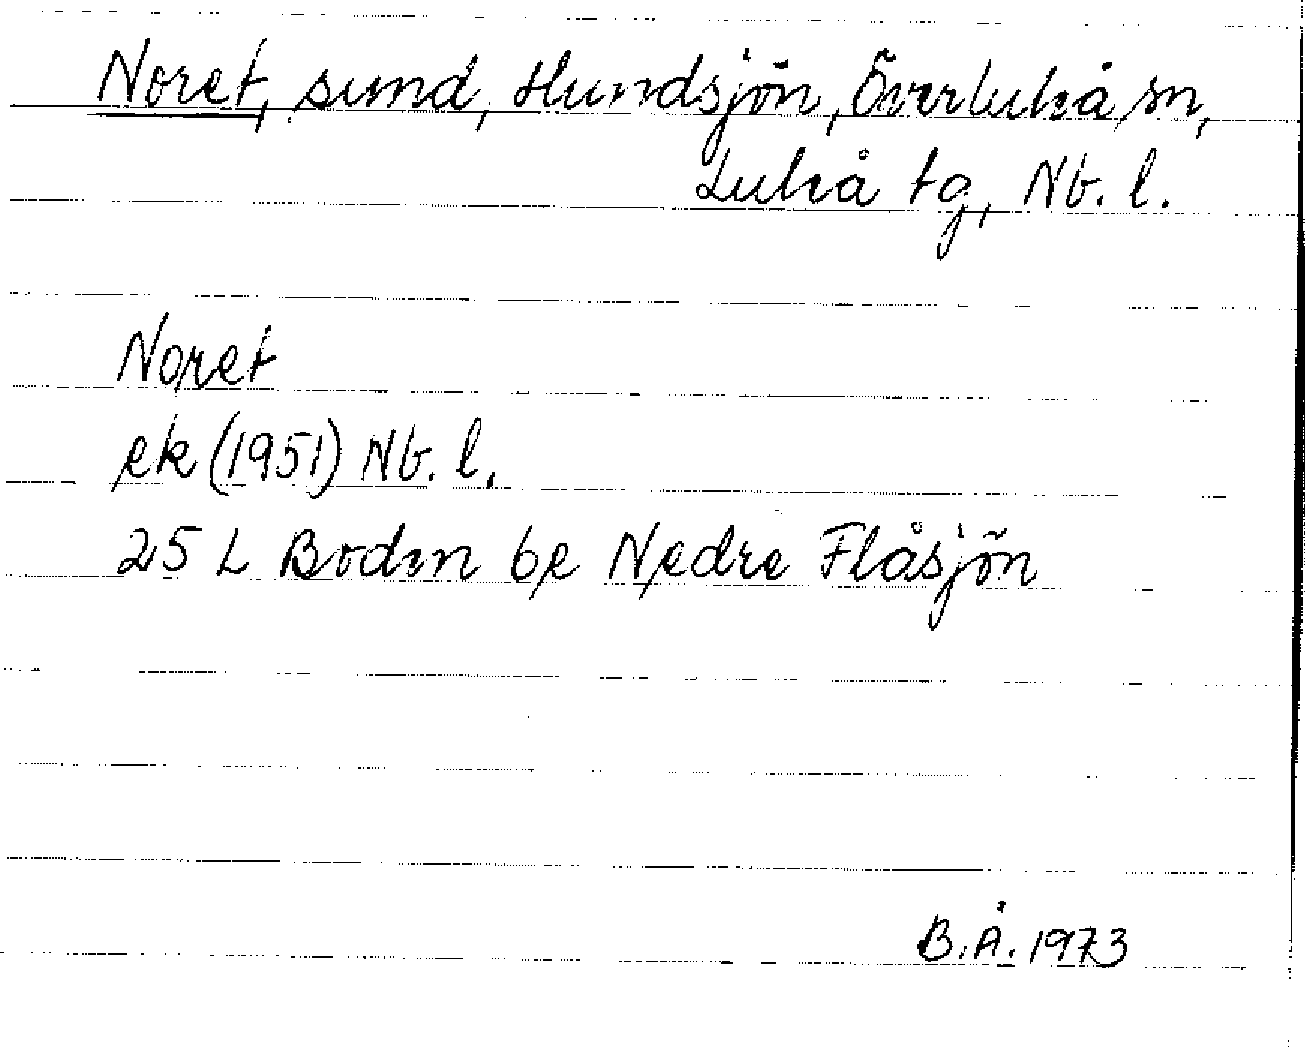 Noret, sund, Hundsjön, Överluleå sn,
Luleå tg, Nb. l.
Noret
ek (1951) Nb. l.
25 L Boden 6e Nedre Flåsjön
B.Å. 1973